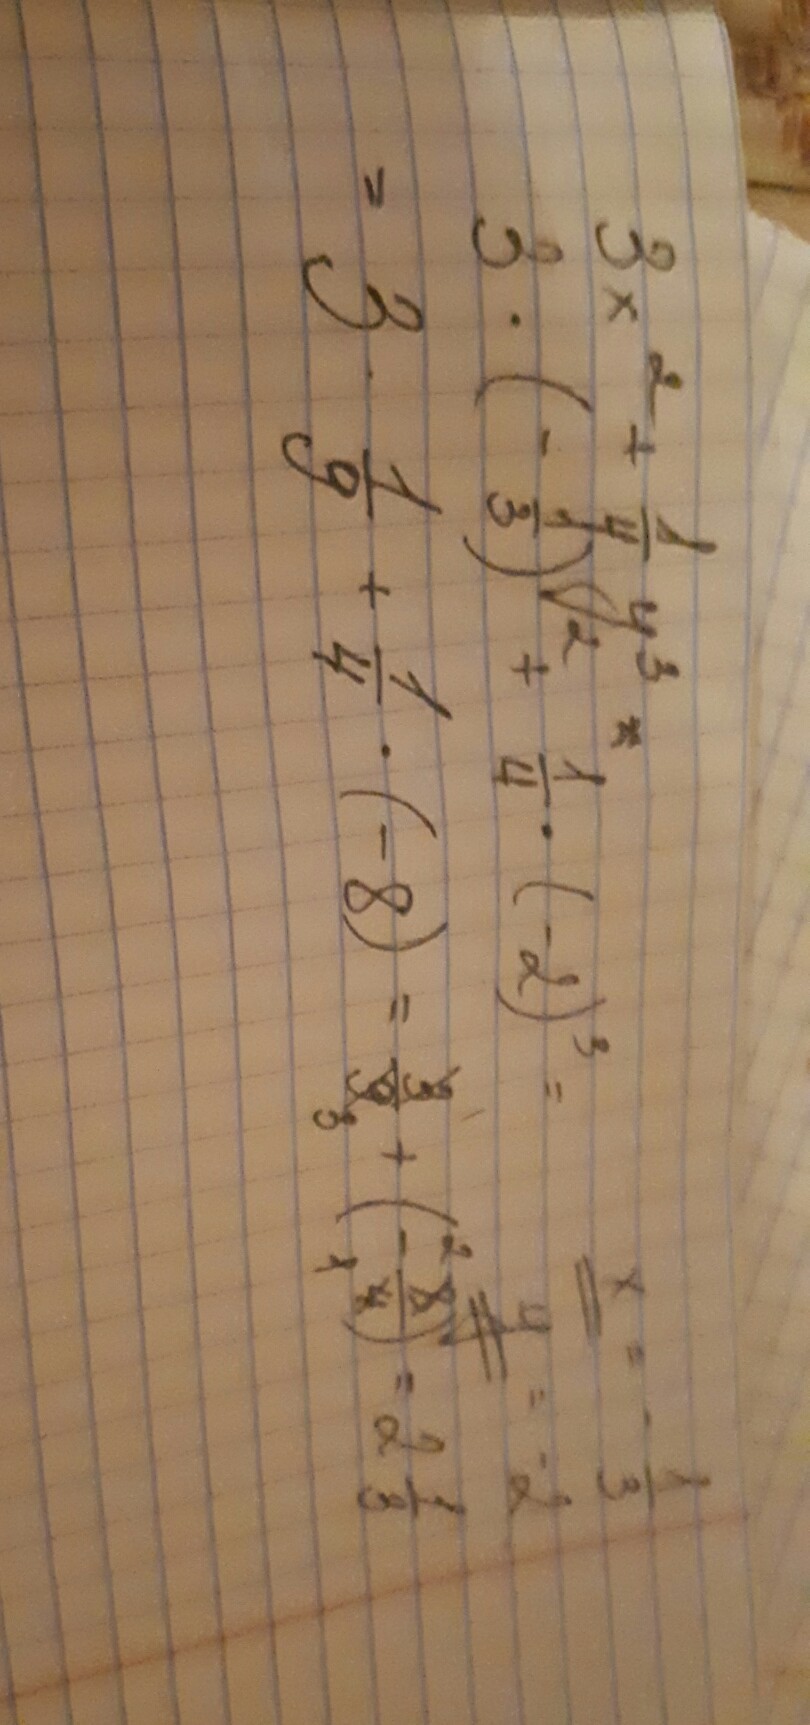 3x² + 1/4 y³ *
x = - 1/3
3 · (- 1/3)² + 1/4 · (-2)³ =
y = -2
= 3 · 1/9 + 1/4 · (-8) = 3/9 3 + (- 2 8/4 1) = 2 1/3